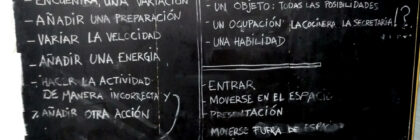 - ENCUENTRA, UNA VARIACIÓN
- AÑADIR UNA PREPARACIÓN
- VARIAR LA VELOCIDAD
- AÑADIR UNA ENERGIA
- HACER LA ACTIVIDAD
DE MANERA INCORRECTA Y
AÑADIR OTRA ACCIÓN
- UN OBJETO: TODAS LAS POSIBILIDADES
- UN OCUPACIÓN LA COCINERA LA SECRETARIA!?
- UNA HABILIDAD
- ENTRAR
- MOVERSE EN EL ESPACIO
- PRESENTACIÓN
- MOVERSE FUERA DE ESPACIO